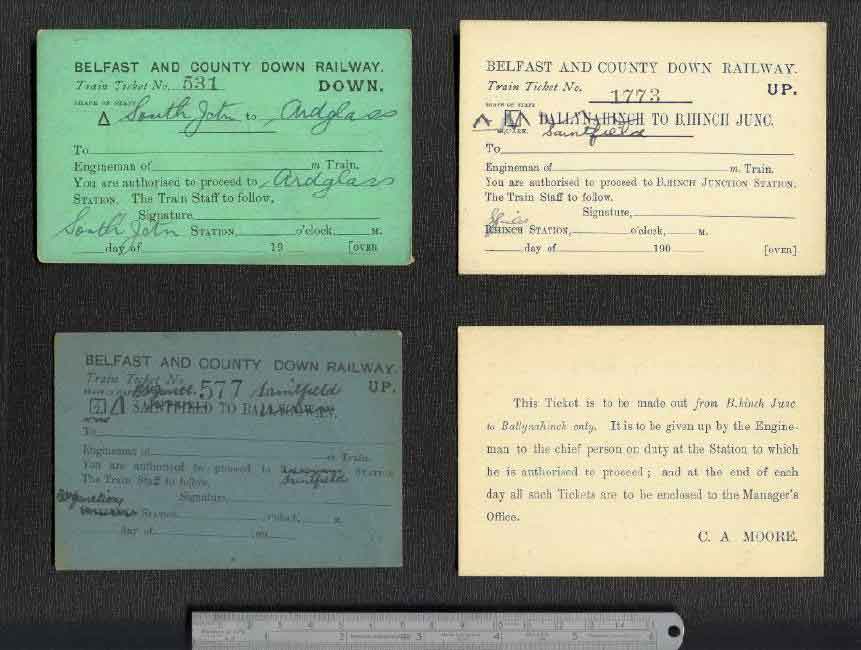 BELFAST AND COUNTY DOWN RAILWAY.
Train Ticket No. 531 DOWN.
SHAPE OF STAFF
South Jctn to Ardglass
To
Engineman of m Train.
You are authorised to proceed to Ardglass
STATION. The Train Staff to follow,
Signature
South Jctn STATION, o'clock, M.
day of 19 [OVER
BELFAST AND COUNTY DOWN RAILWAY.
Train Ticket No. 1773 UP.
SHAPE OF STAFF
BALLYNAHINCH TO B.HINCH JUNC.
Saintfield
To
Engineman of m. Train.
You are authorised to proceed to B.HINCH JUNCTION STATION.
The Train Staff to follow.
Signature,
B.HINCH STATION, o'clock, M.
day of 190 [OVER]
BELFAST AND COUNTY DOWN RAILWAY.
Train Ticket No. UP.
577 Saintfield
SAINTFIELD TO
To
Engineman of m Train.
You are authorised to proceed to STATION
The Train Staff to follow. Saintfield
Signature,
STATION o'clock, M.
day of 190
This Ticket is to be made out from B.hinch Junc
to Ballynahinch only. It is to be given up by the Engine-
man to the chief person on duty at the Station to which
he is authorised to proceed; and at the end of each
day all such Tickets are to be enclosed to the Manager's
Office.
C. A MOORE.
1 2 3 4 5 6